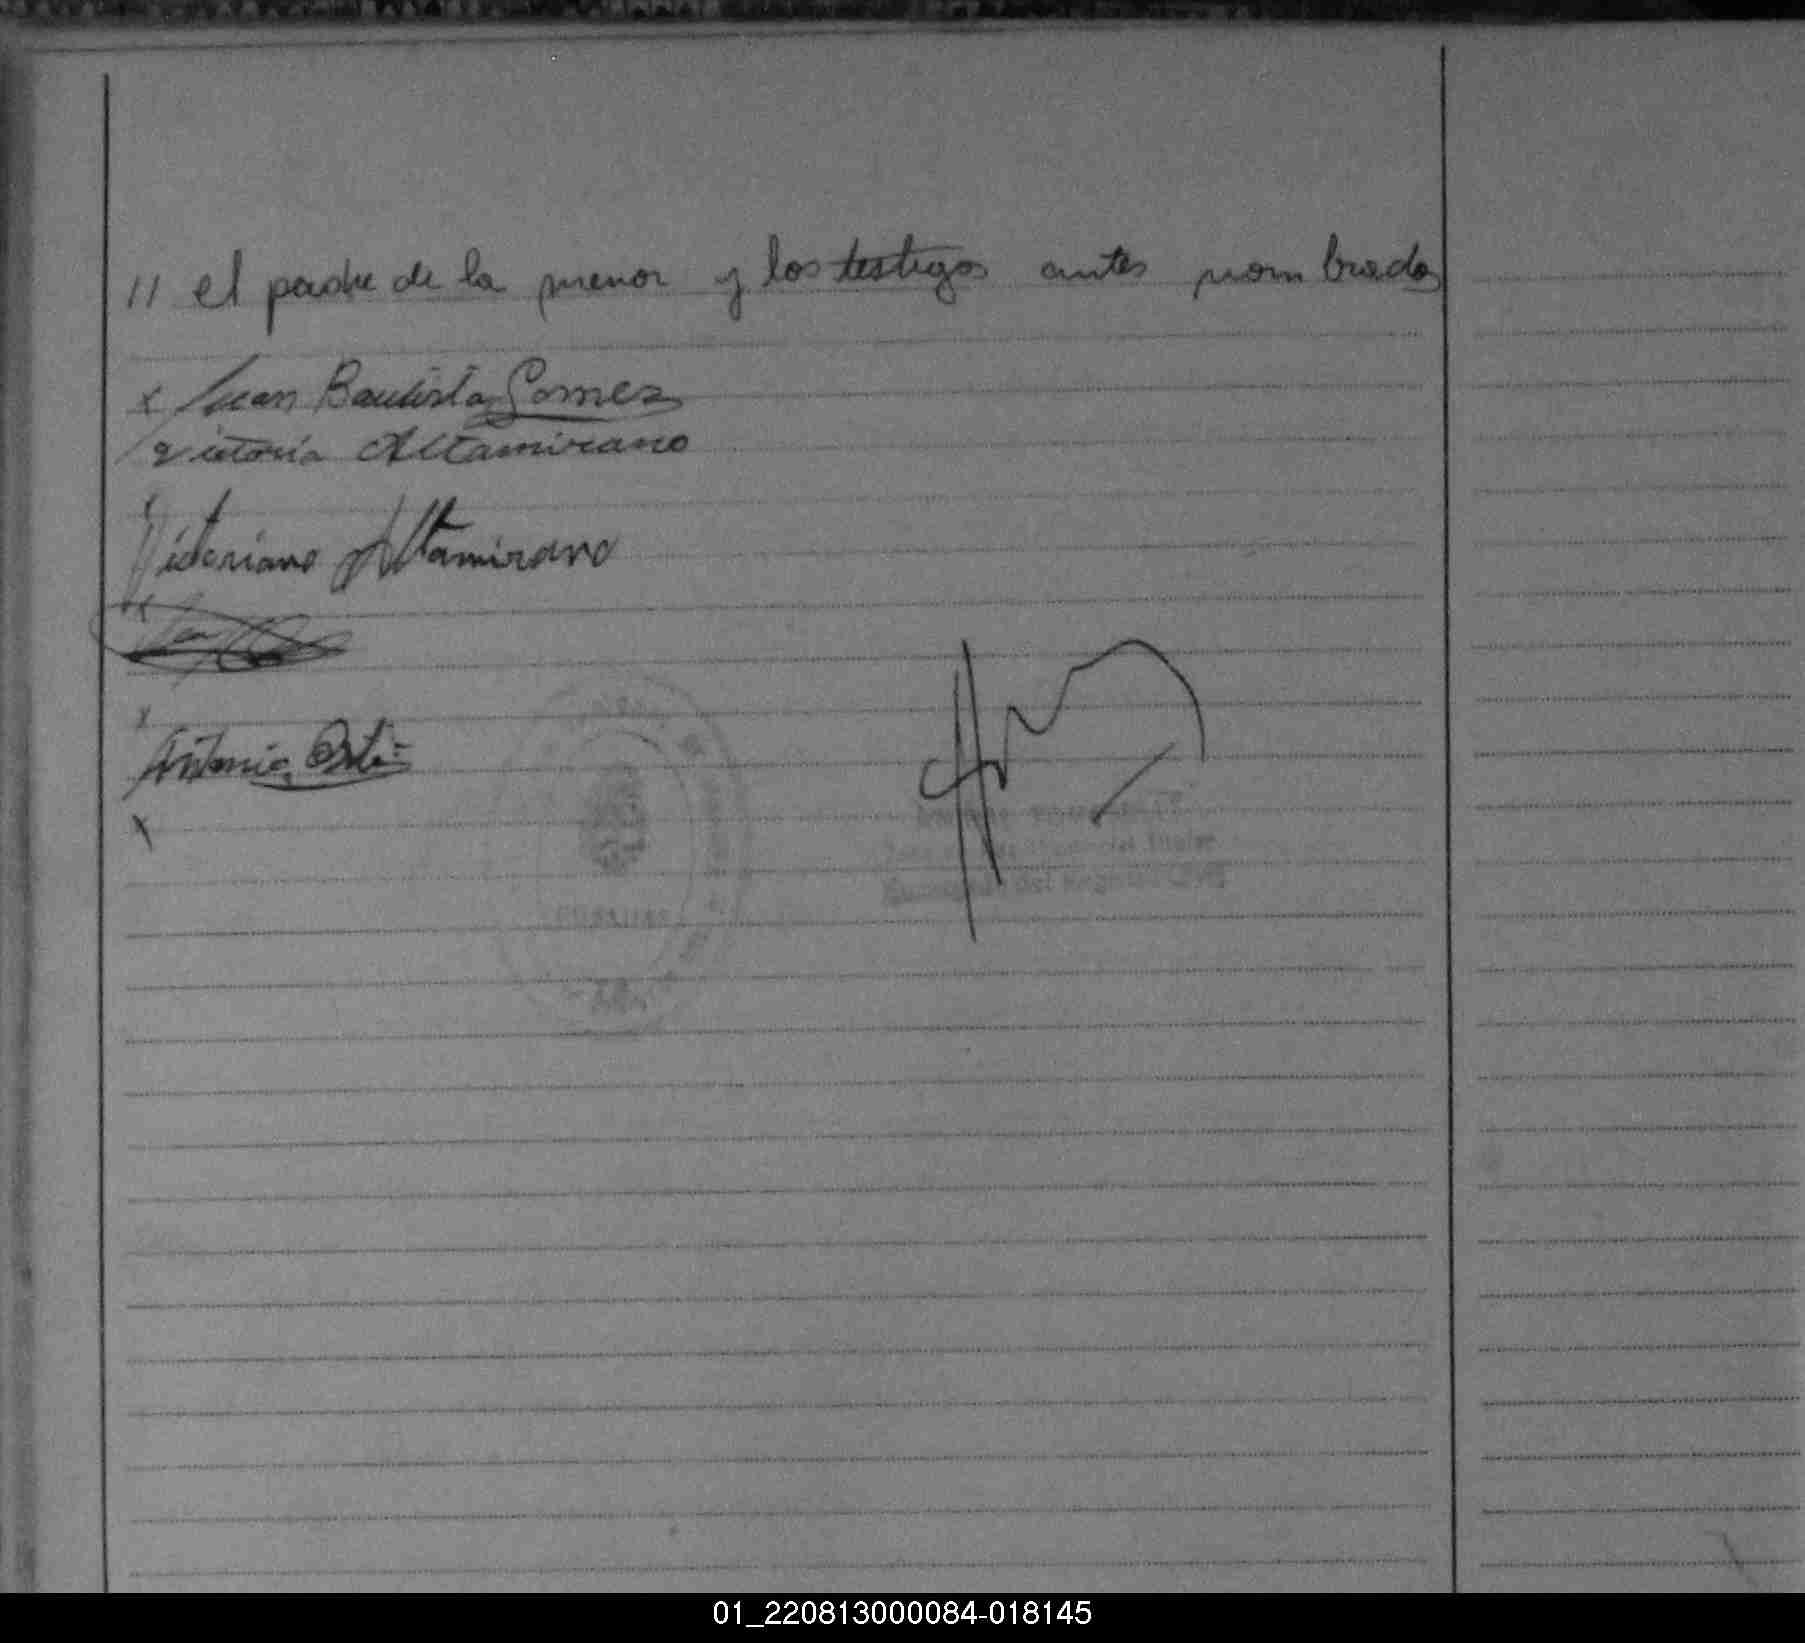 11 el padre de la menor y los testigos antes nombrados
x Juan Bautista Gomez
Victoria Altamirano
x
Victoriano Altamirano
x
x
Antonio
x
del Registro Civil
01_220813000084-018145